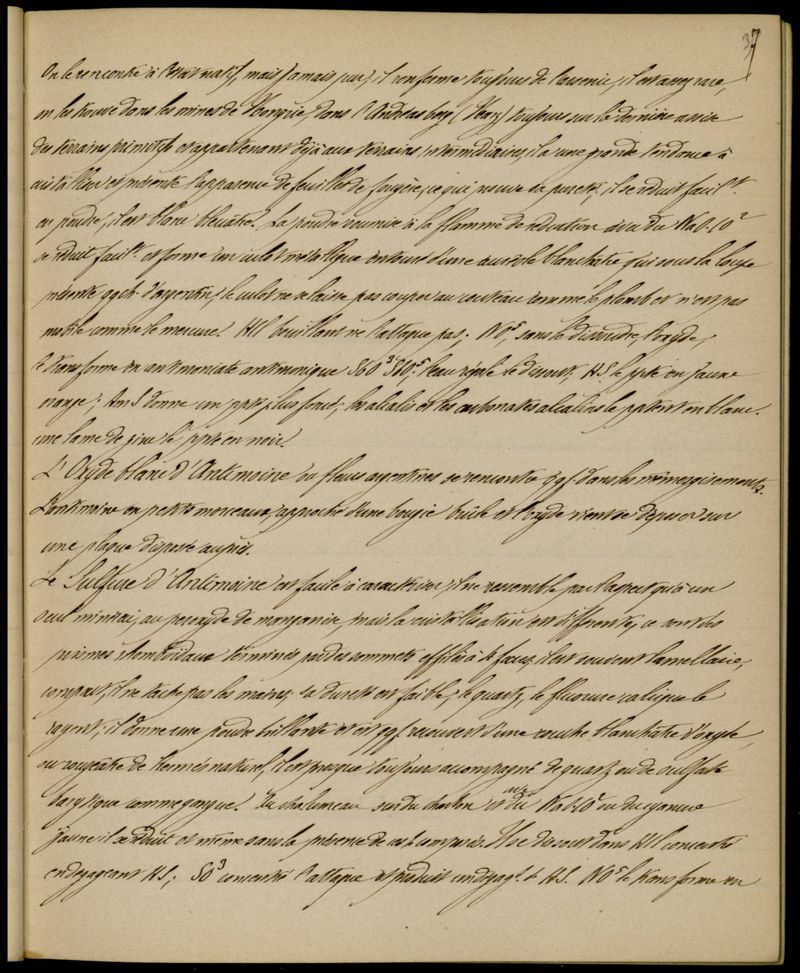 37
On le rencontre à l'état natif, mais jamais pur, il renferme toujours de l'arsenic, il est assez rare,
on le trouve dans les mines de Hongrie, dans l'Andreasberg (Harz) toujours sur la dernière assise
des terrains primitifs et appartenant déjà aux terrains intermédiaires, il a une grande tendance à
cristalliser et présente l'apparence de feuilles de fougère, ce qui prouve sa pureté; il se réduit facilt
en poudre, il est blanc bleuâtre. La poudre soumise à la flamme de réduction avec du NaO.CO2
se réduit facilt et forme un culot métallique entouré d'une auréole blanchâtre qui sous la loupe
présente qqch d'argentin, le culot ne se laisse pas couper au couteau comme le plomb et n'est pas
mobile comme le mercure. HCl bouillant ne l'attaque pas; NO5 sans le dissoudre l'oxyde,
le transforme en antimoniate antimonique SbO3 SbO5. l'eau régale le dissout, HS le ppte en jaune
orangé; Am S donne un ppté plus foncé; les alcalis et les carbonates alcalins le pptent en blanc.
une lame de zinc le ppte en noir.
L'Oxyde blanc d'Antimoine ou fleurs argentines se rencontre qqf. dans les mêmes gisements.
L'antimoine en petits morceaux, approché d'une bougie brûle et l'oxyde vient se déposer sur
une plaque disposée auprès.
Le Sulfure d'Antimoine est facile à caractériser, il ne ressemble par l'aspect qu'à un
seul minerai, au peroxyde de manganèse, mais la cristallisation est différente, ce sont des
prismes rhomboïdaux terminés par des sommets effilés à 4 faces, il est souvent lamellaire,
compact, il ne tache pas les mains, sa dureté est faible, le quartz, le fluorure calcique le
rayent; il donne une poudre brillante et est qqf. recouvert d'une couche blanchâtre d'oxyde,
ou rougeâtre de kermès naturel, il est presque toujours accompagné de quartz ou de sulfate
barytique comme gangue. Au chalumeau sur du charbon avec du NaO.CO2 ou du cyanure
jaune il se réduit et même sans la présence de ces 2 composés. Il se dissout dans HCl concentré
en dégageant HS; SO3 concentré l'attaque et produit un dégagt de HS. NO5 le transforme en